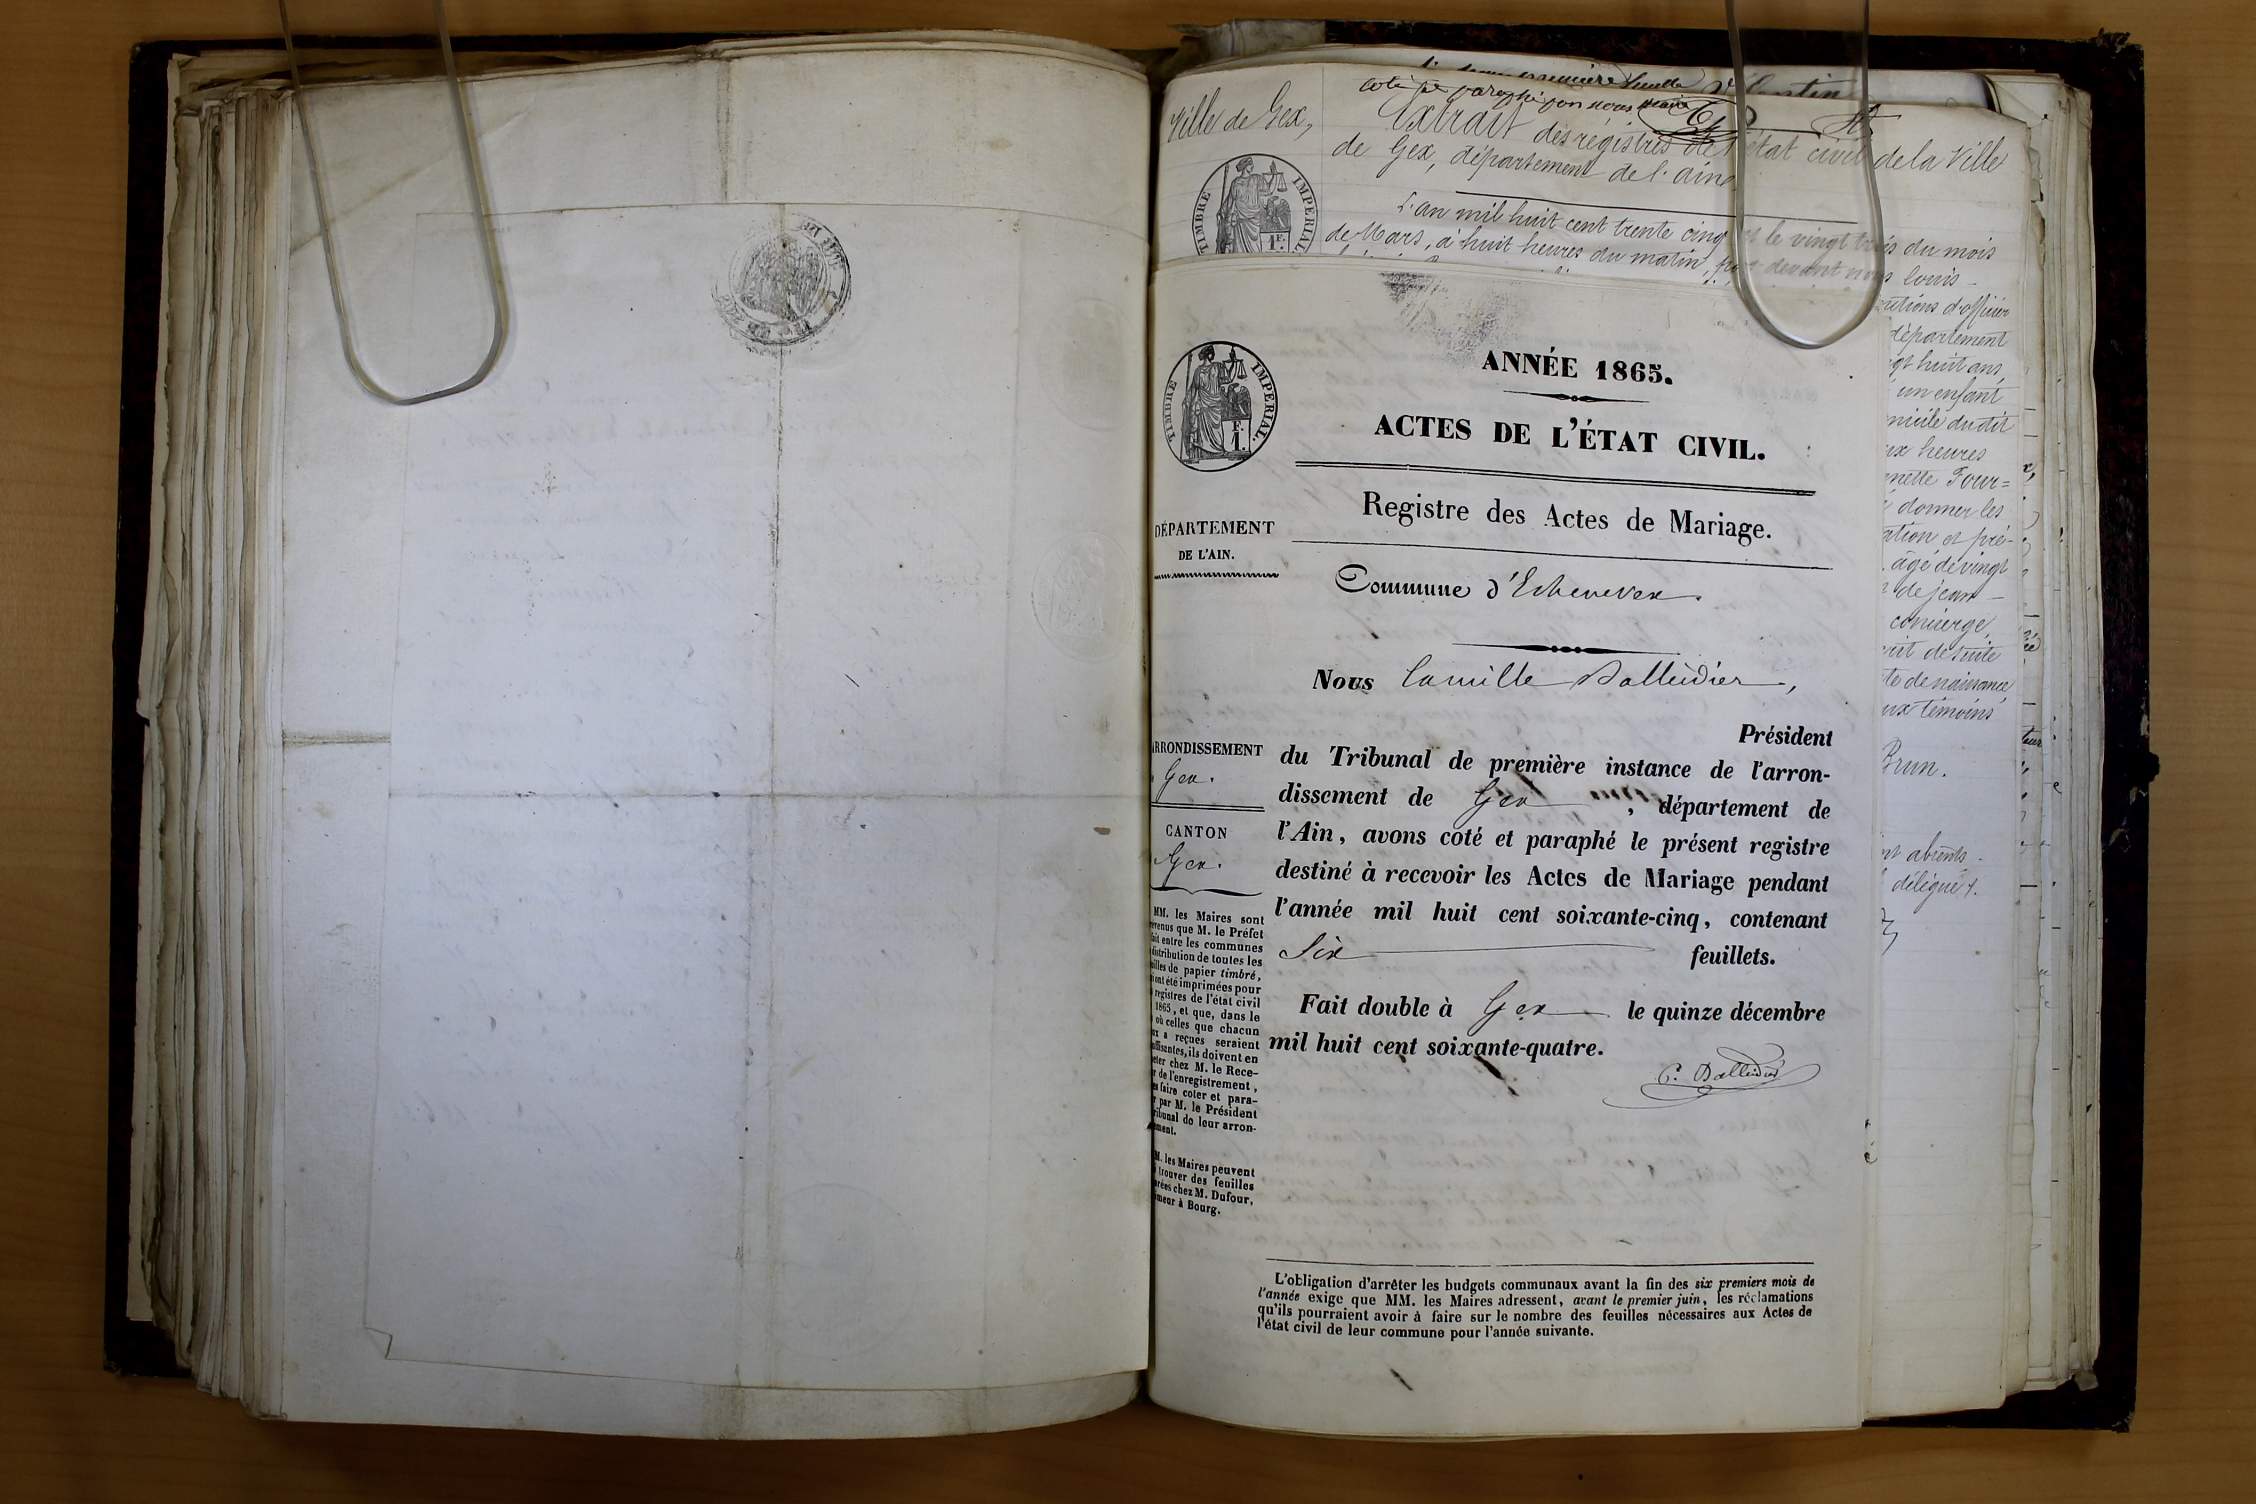 Ville de Gex,
coté et paraphé par nous
Extrait des régistres de l'état civil de la Ville
de Gex, département de l'ain
TIMBRE IMPERIAL
1 F.
L'an mil huit cent trente cinq et le vingt trois du mois
de Mars, à huit heures du matin, par devant nous louis
d'officier
département
huit ans,
un enfant
dudit
heures
Four=
donner les
et pré-
âgé de vingt
de jean
concierge,
de suite
de naissance
témoins
Brun.
absents
délégué
ANNÉE 1865.
ACTES DE L'ÉTAT CIVIL.
TIMBRE IMPERIAL.
F.
1.
Registre des Actes de Mariage.
DÉPARTEMENT
DE L'AIN.
Commune d'Echenevex.
Nous Camille Balleidier,
Président
du Tribunal de première instance de l'arron-
dissement de Gex, département de
l'Ain, avons coté et paraphé le présent registre
destiné à recevoir les Actes de Mariage pendant
l'année mil huit cent soixante-cinq, contenant
Six feuillets.
Fait double à Gex le quinze décembre
mil huit cent soixante-quatre.
C. Balleidier
ARRONDISSEMENT
Gex.
CANTON
Gex.
MM. les Maires sont
que M. le Préfet
entre les communes
distribution de toutes les
de papier timbré,
ont été imprimées pour
registres de l'état civil
1865, et que, dans le
où celles que chacun
a reçues seraient
ils doivent en
chez M. le Rece-
de l'enregistrement,
faire coter et para-
par M. le Président
de leur arron-
les Maires peuvent
trouver des feuilles
chez M. Dufour,
à Bourg.
L'obligation d'arrêter les budgets communaux avant la fin des six premiers mois de
l'année exige que MM. les Maires adressent, avant le premier juin, les réclamations
qu'ils pourraient avoir à faire sur le nombre des feuilles nécessaires aux Actes de
l'état civil de leur commune pour l'année suivante.